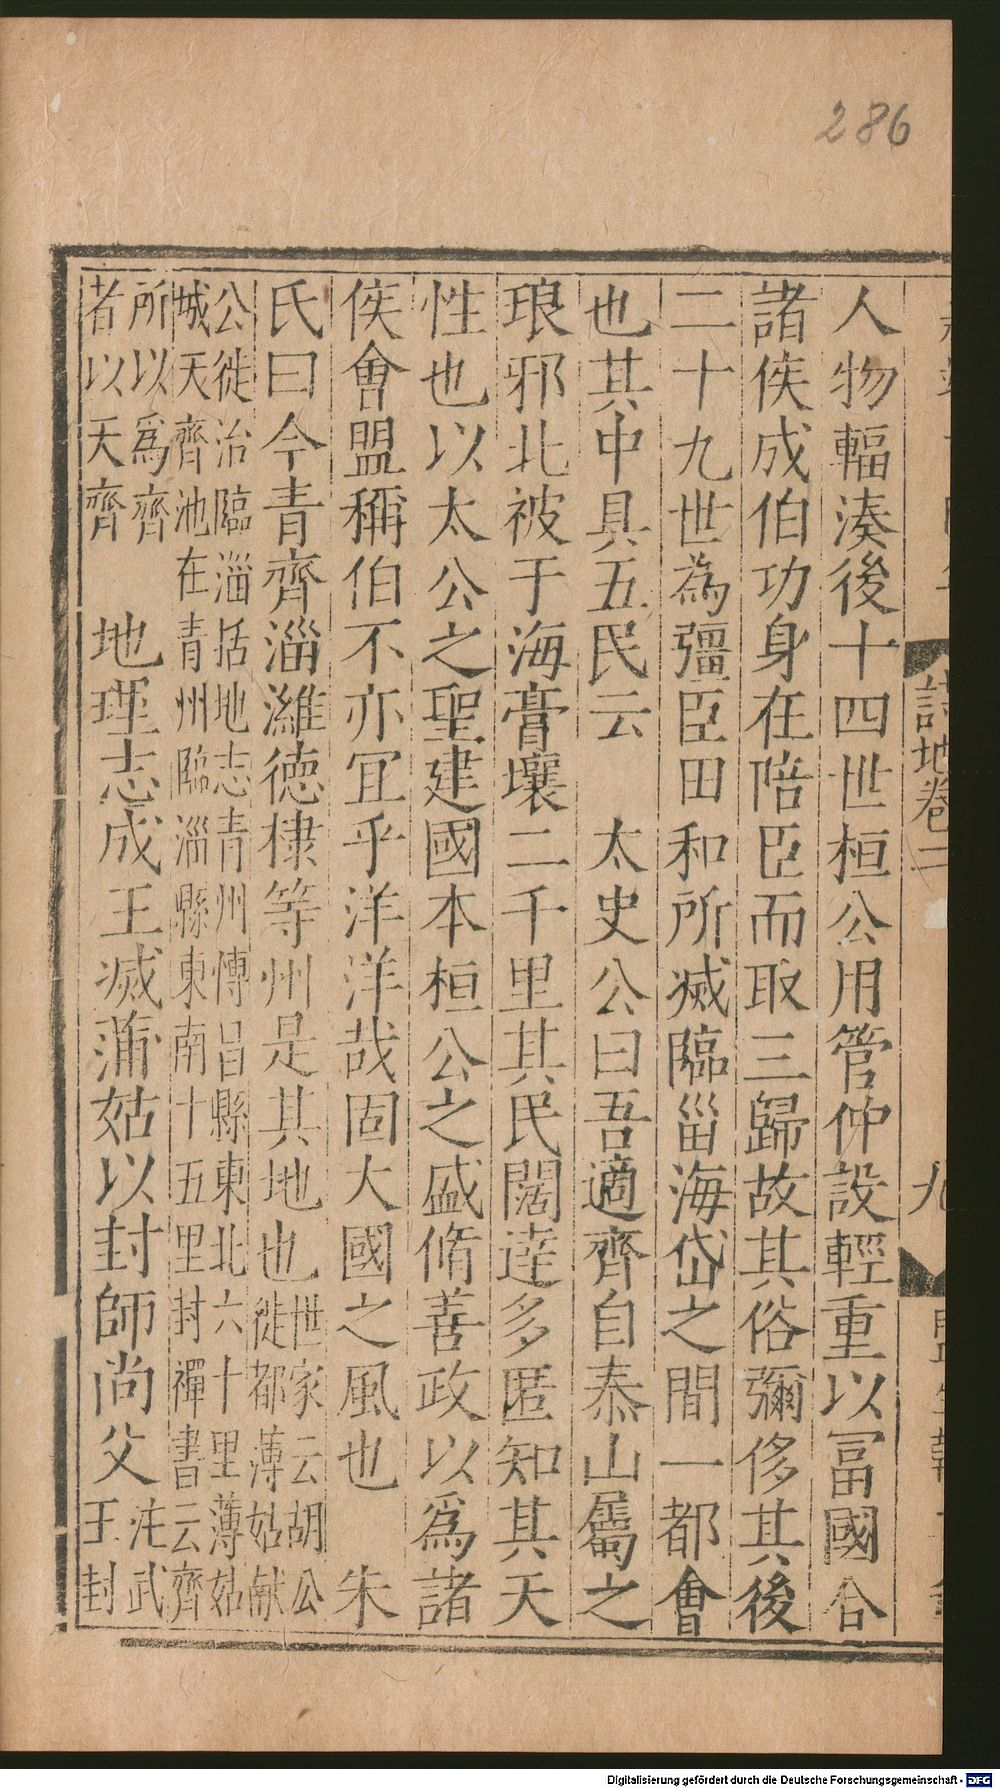 286
詩地卷二
九
人物輻湊後十四世桓公用管仲設輕重以冨國合
諸侯成伯功身在陪臣而取三歸故其俗彌侈其後
二十九世為彊臣田和所滅臨甾海岱之間一都㑹
也其中具五民云　太史公曰吾適齊自泰山屬之
琅邪北被于海膏壤二千里其民闊達多匿知其天
性也以太公之聖建國本桓公之盛脩善政以爲諸
侯㑹盟稱伯不亦冝乎洋洋哉固大國之風也　朱
氏曰今青齊淄濰德棣等州是其地也
世家云胡公
徙都薄姑献
公徙治臨淄括地志青州博昌縣東北六十里薄姑
城天齊池在青州臨淄縣東南十五里封禪書云齊
所以爲齊
者以天齊
地理志成王滅蒲姑以封師尚父
注武
王封
Digitalisierung gefördert durch die Deutsche Forschungsgemeinschaft - DFG